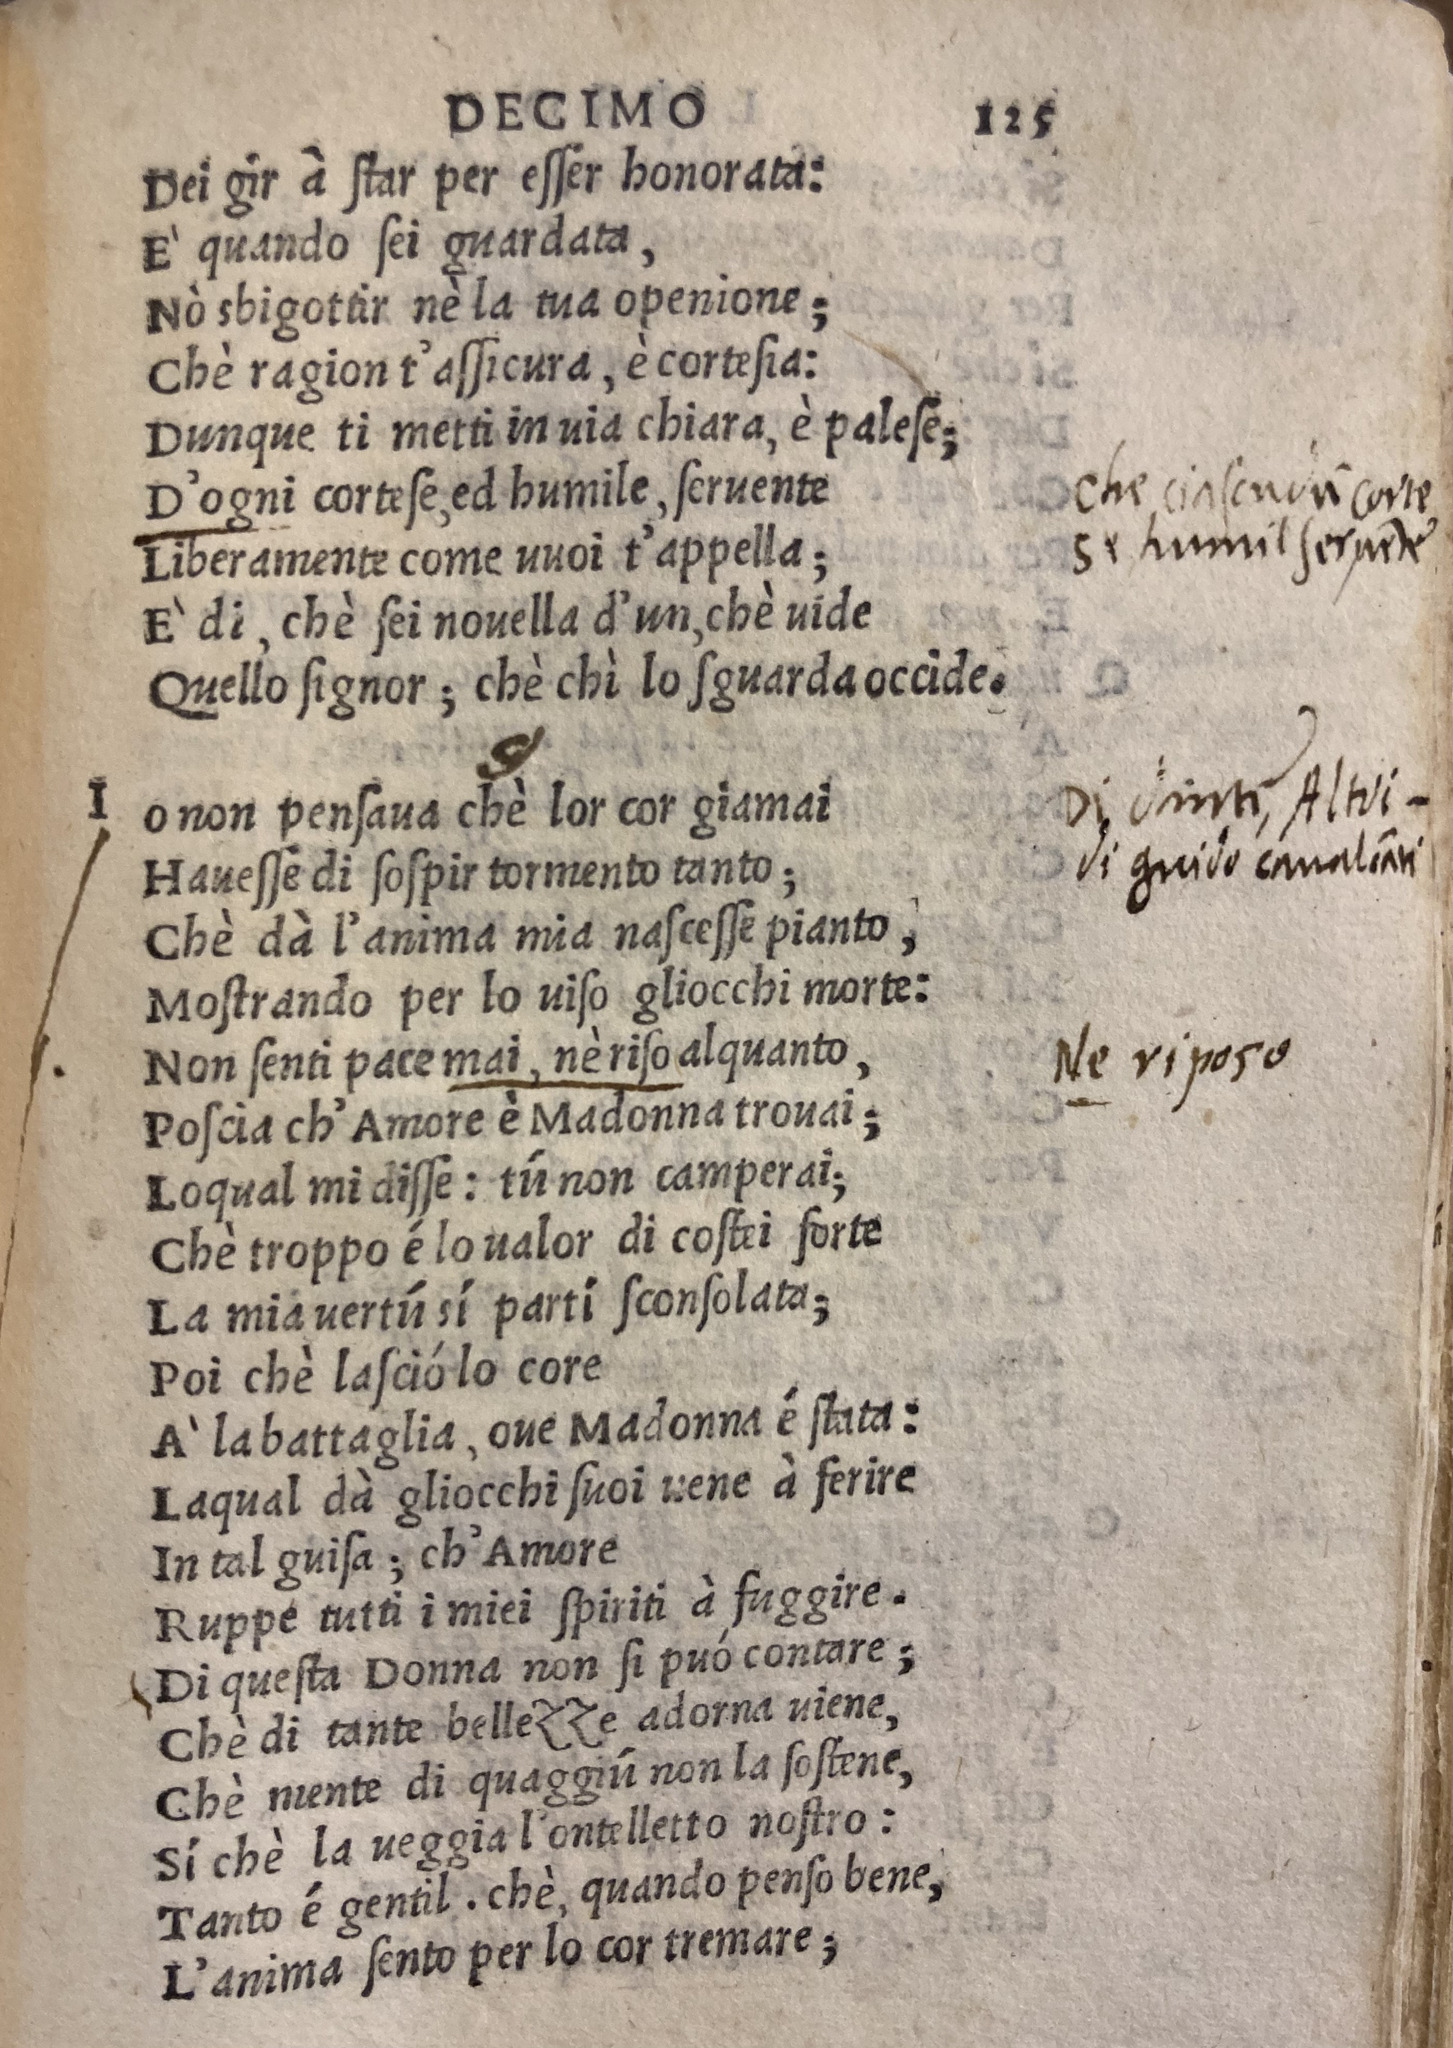 DECIMO 125
Dei gir â ſtar per eſſer honorata:
E' quando ſei guardata,
Nò sbigottir nè la tua openione;
Chè ragion t'aſſicura, è corteſia:
Dunque ti metti in uia chiara, è paleſe;
D'ogni corteſe, ed humile, ſeruente
Che ciaſcuõ corte
se humil ſeruẽte
Liberamente come uuoi t'appella;
E' di, chè ſei nouella d'un, chè uide
Quello ſignor; chè chì lo ſguarda occide.
9
Io non penſaua chè lor cor giamai
Di Altri
di guido caualcãti
Haueſſe di ſoſpir tormento tanto;
Chè dà l'anima mia naſceſſe pianto,
Moſtrando per lo uiſo gliocchi morte:
Non ſenti pace mai, nè riſo alquanto,
Ne riposo
Poſcia ch'Amore è Madonna trouai;
Loqual mi diſſe: tú non camperai;
Chè troppo é lo ualor di coſtei forte
La mia uertú sí partí ſconſolata;
Poi chè laſció lo core
A' la battaglia, oue Madonna é ſtata:
Laqual dà gliocchi ſuoi uene à ferire
In tal guiſa; ch'Amore
Ruppe tutti i miei ſpiriti à fuggire.
Di queſta Donna non ſi puó contare;
Chè di tante bellezze adorna uiene,
Chè mente di quaggiú non la ſoſtene,
Sí chè la ueggia l'ontelletto noſtro:
Tanto é gentil. chè, quando penſo bene,
L'anima ſento per lo cor tremare;